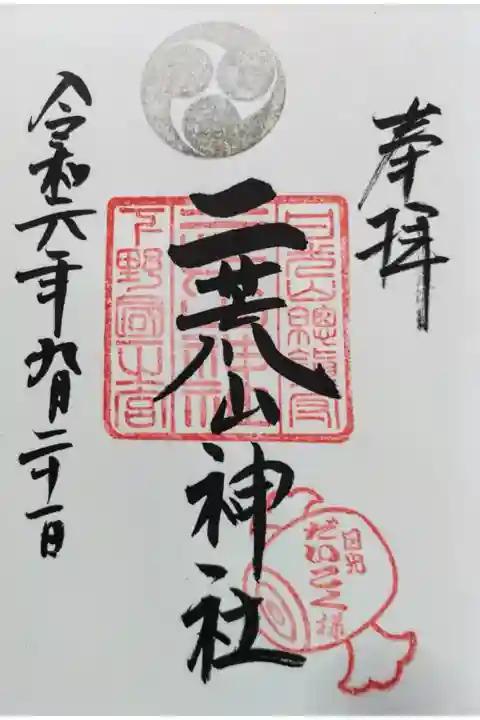 奉拝
日光山總鎮守
二荒山神社
下野國一之宮
日光
だいこく様
令和六年九月二十一日